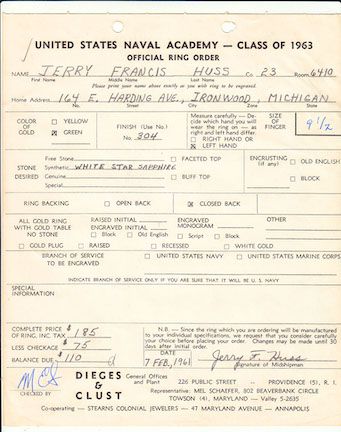 UNITED STATES NAVAL ACADEMY — CLASS OF 1963
OFFICIAL RING ORDER
NAME JERRY FRANCIS HUSS Co 23 Room 6410
First Name Middle Name Last Name
Please print your name above exactly as you wish it to be engraved.
Home Address 164 E. HARDING AVE., IRONWOOD, MICHIGAN
No. Street City Zone State
COLOR OF GOLD ☐ YELLOW ☒ GREEN
FINISH (Use No.) No 304
Measure carefully — Decide which hand you will wear the ring on — as right and left hand differ.
☐ RIGHT HAND OR
☒ LEFT HAND
SIZE OF FINGER 9 1/2
STONE DESIRED
Free Stone ☐ FACETED TOP
Synthetic WHITE STAR SAPPHIRE
Genuine ☐ BUFF TOP
Special
ENGRUSTING (if any) ☐ OLD ENGLISH
☐ BLOCK
RING BACKING ☐ OPEN BACK ☒ CLOSED BACK
ALL GOLD RING WITH GOLD TABLE NO STONE
RAISED INITIAL
ENGRAVED INITIAL
☐ Block ☐ Old English
ENGRAVED MONOGRAM
☐ Script ☐ Block
OTHER
☐ GOLD PLUG ☐ RAISED ☐ RECESSED ☐ WHITE GOLD
BRANCH OF SERVICE TO BE ENGRAVED ☐ UNITED STATES NAVY ☐ UNITED STATES MARINE CORPS
INDICATE BRANCH OF SERVICE ONLY IF YOU ARE SURE THAT IT WILL BE U. S. NAVY
SPECIAL INFORMATION
COMPLETE PRICE OF RING, INC. TAX $ 185
LESS CHECKAGE $ 75
BALANCE DUE $ 110
N.B. — Since the ring which you are ordering will be manufactured to your individual specifications, we request that you consider carefully your choice before placing your order. Changes may be made until 30 days after initial order.
DATE 7 FEB., 1961
Jerry F. Huss
Signature of Midshipman
CHECKED BY
DIEGES & CLUST
General Offices and Plant 226 PUBLIC STREET — PROVIDENCE (5), R. I.
Representative: MEL SCHAEFER, 802 BEAVERBANK CIRCLE
TOWSON (4), MARYLAND — Valley 5-2635
Co-operating — STEARNS COLONIAL JEWELERS — 47 MARYLAND AVENUE — ANNAPOLIS